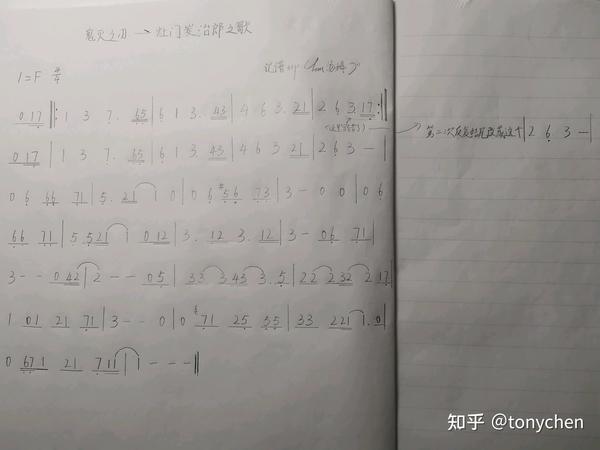 鬼灭之刃 → 灶门炭治郎之歌
1=F 4/4 记谱 by
0 17 ‖: 1 3 7. 65 | 6 1 3. 43 | 4 6 3. 21 | 2 6 3. 17 :‖
第二次反复 | 2 6 3 — |
0 17 | 1 3 7. 65 | 6 1 3. 43 | 4 6 3 21 | 2 6 3 — |
0 6 66 71 | 5. 21 1 0 | 0 6 #56 73 | 3 — 0 0 | 0 6
66 71 | 5 521 1 0 12 | 3. 12 3. 12 | 3 — 06 71 |
3 - - 0 42 | 2 - - 0 5 | 33 3 43 3. 5 | 22 2 32 2 17 |
1 01 21 71 | 3 - - 0 | 0 71 25 35 | 33 221 1. 0 |
0 671 21 711 | 1 - - - ‖
知乎 @tonychen